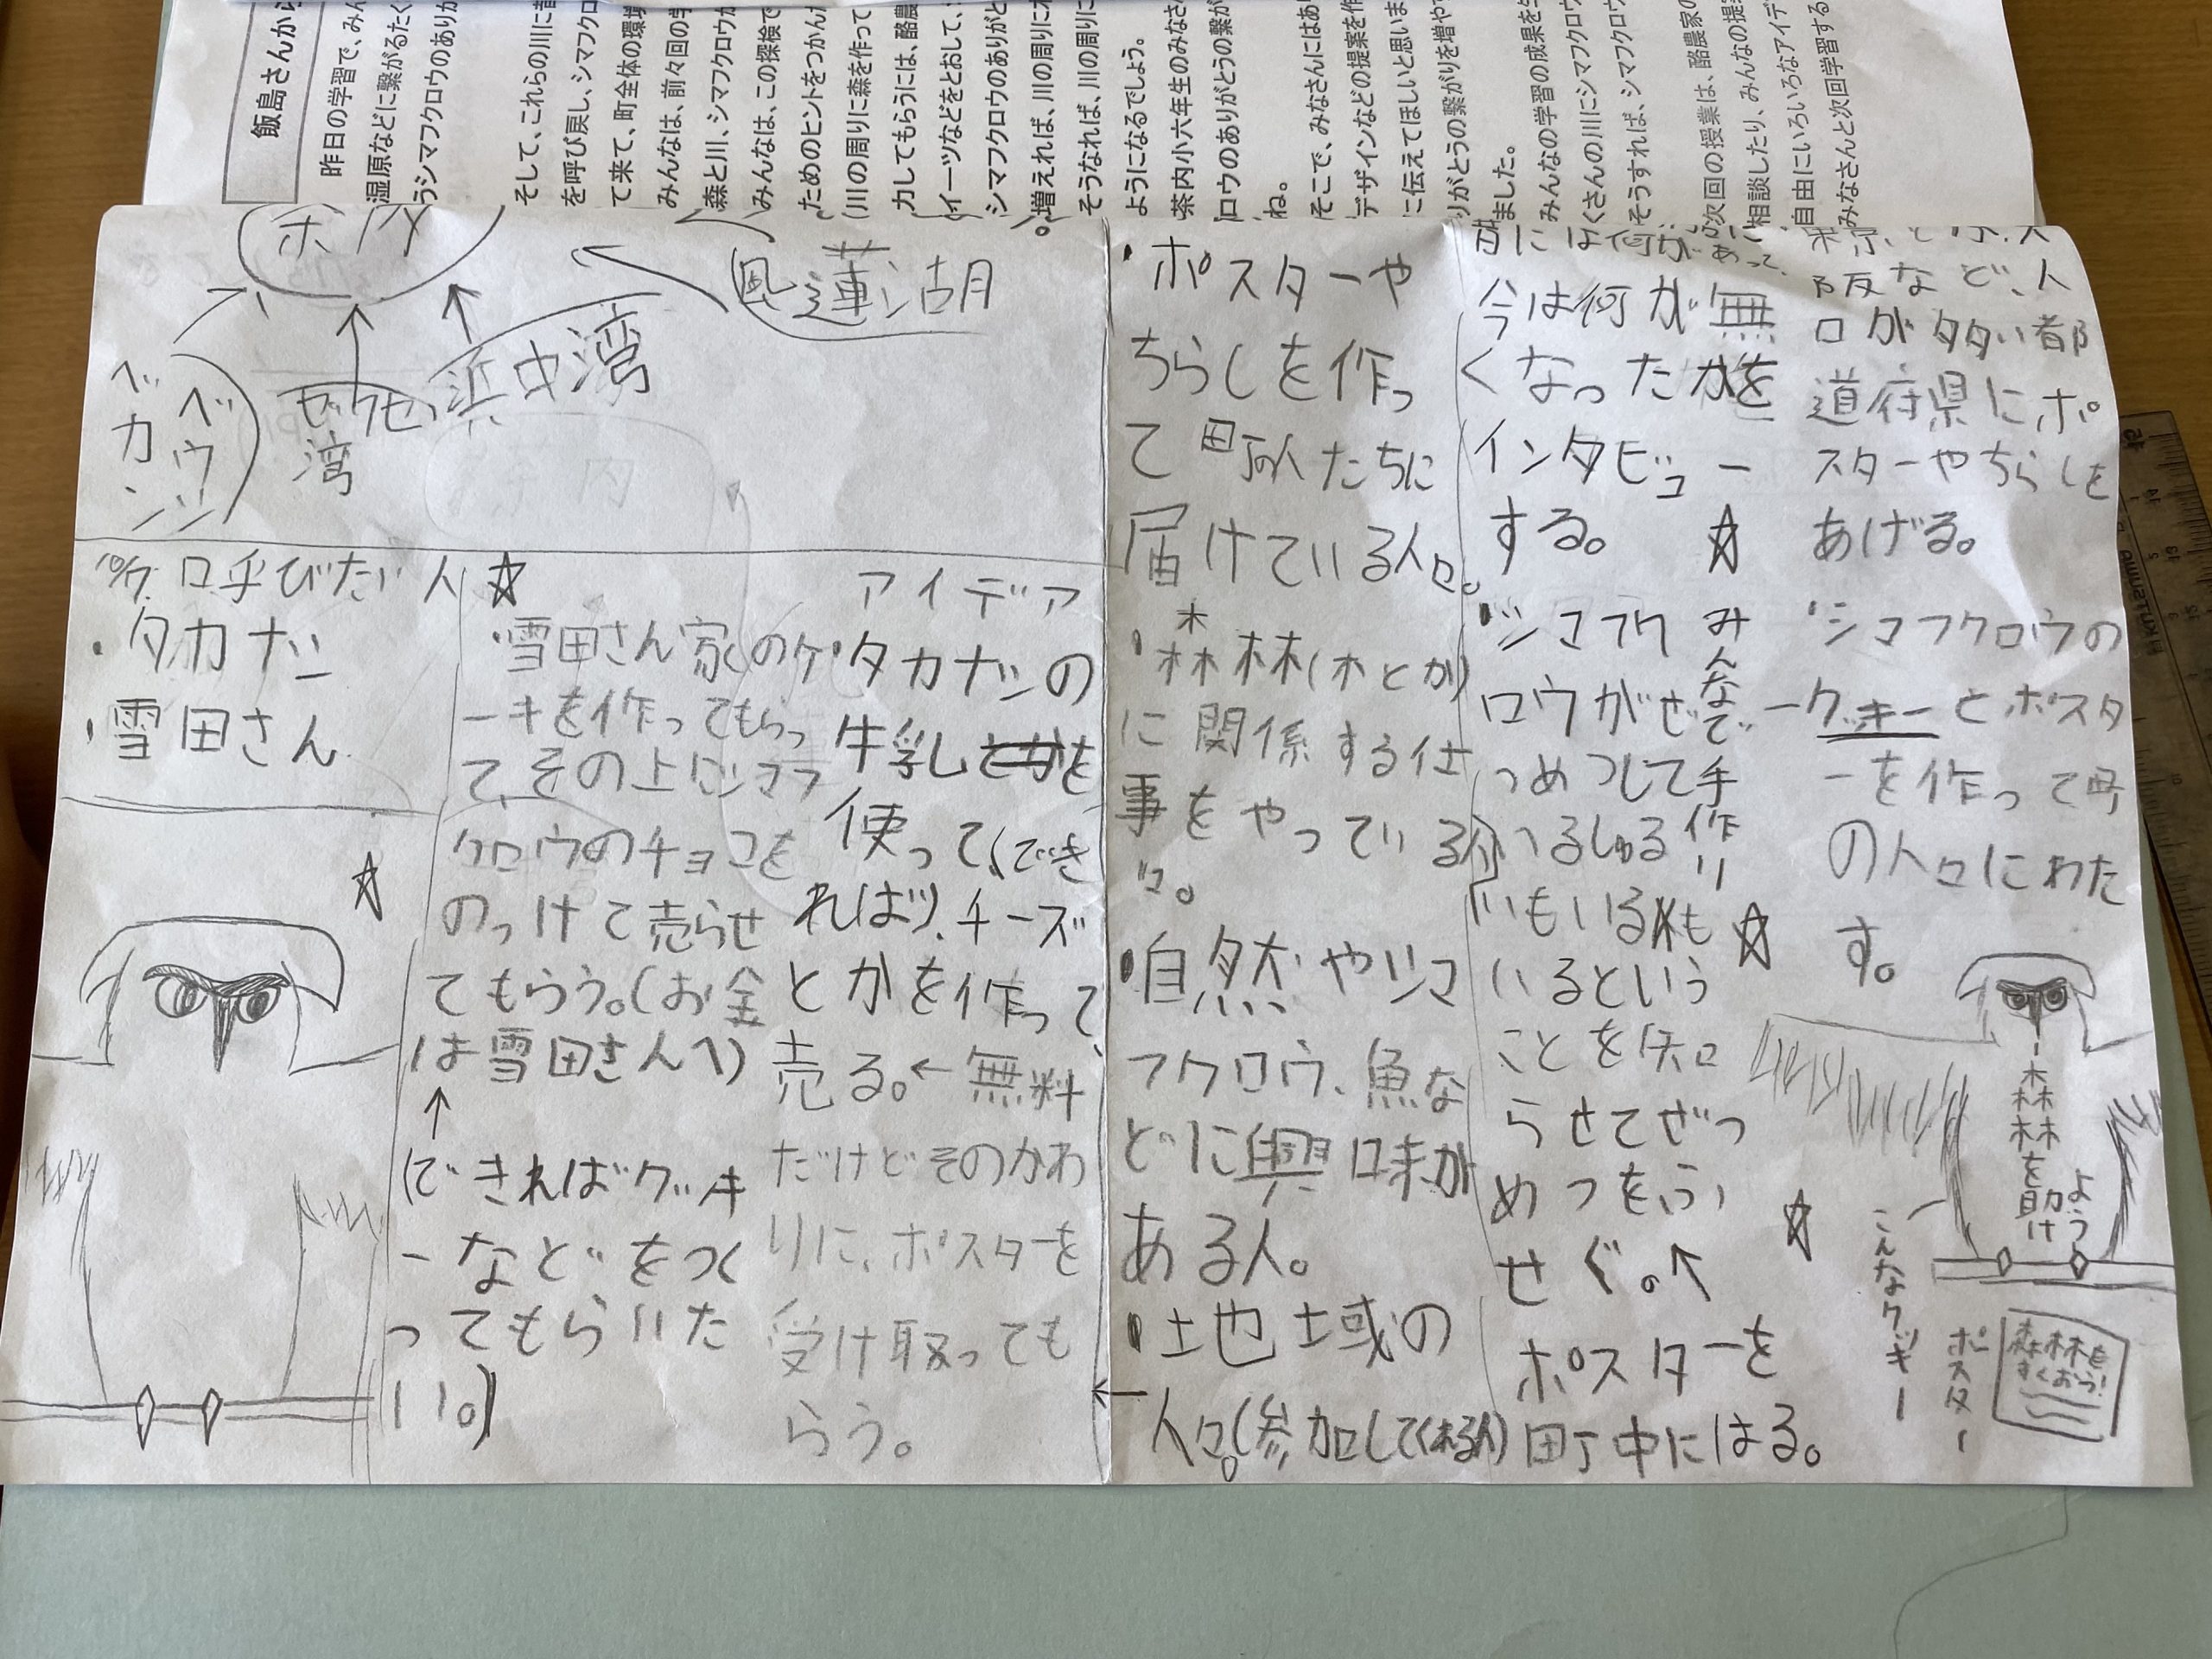 飯島さんから
昨日の学習で、みん
湿原などに繋がるたく
うシマフクロウのありが
そして、これらの川に昔
を呼び戻し、シマフクロ
て来て、町全体の環境
みんなは、前々回の学
森と川、シマフクロウが
みんなは、この探検で
ためのヒントをつかんだ
(川の周りに森を作って
力してもらうには、酪農
イーツなどをとおして、
シマフクロウのありがと
増えれば、川の周りに木
そうなれば、川の周りに
ようになるでしょう。
茶内小六年生のみなさん
ロウのありがとうの繋が
ね。
そこで、みなさんにはあり
デザインなどの提案を作
に伝えてほしいと思いま
りがとうの繋がりを増やす
ました。
みんなの学習の成果を
くさんの川にシマフクロウ
そうすれば、シマフクロウ
次回の授業は、酪農家の
相談したり、みんなの提案
自由にいろいろなアイデ
みなさんと次回学習する
茶内
風蓮湖
浜中湾
ビワセ
湾
ベカン
ベウシ
呼びたい人
・タカナシ
・雪田さん
☆
・雪田さん家のケ
ーキを作ってもらっ
て、その上にシマフ
クロウのチョコを
のっけて売らせ
てもらう。(お金
は雪田さんへ)
↑
(できればクッキ
ーなどをつく
ってもらいた
い。)
☆
アイデア
・タカナシの
牛乳を
使って、(でき
れば)、チーズ
とかを作って、
売る。←無料
だけどそのかわ
りに、ポスターを
受け取っても
らう。
・ポスターや
ちらしを作っ
て町人たちに
届けている人々。
・森林(木とか)
に関係する仕
事をやっている人
々。
・自然やシマ
フクロウ、魚な
どに興味が
ある人。
・土地土域の
人々。(参加してくれる人)
今は何が無
くなったかを
インタビュー
する。
☆
・シマフク
ロウがぜ
つめつして
いもいる
いるという
ことを知
らせてぜつ
めつをふ
せぐ。↑
ポスターを
町中にはる。
みんなで手作り
☆
☆
阪など、人
口が多い都
道府県にポ
スターやちらしを
あげる。
・シマフクロウの
クッキーとポスタ
ーを作って町
の人々にわた
す。
森林を助け
よう
こんなクッキー
ポスター
森林を
すくおう!